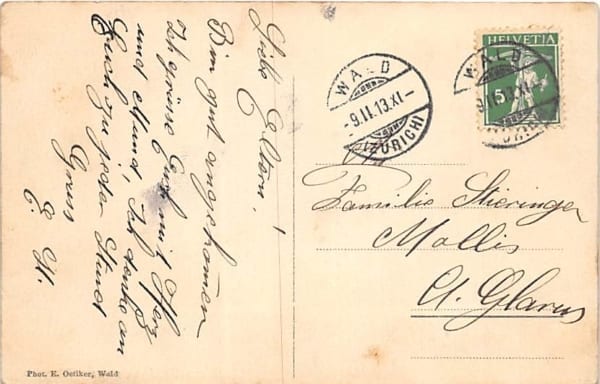 Liebe Eltern,
Bin gut angekommen
Ich grüsse Euch mit Herz
und Mund, Ich denke an
Euch zu jeder Stund
Gruss
E. St.
Phot. E. Oetiker, Wald
WALD
-9.II.13.XI-
(ZÜRICH)
HELVETIA
5
WALD
-9.II.13.XI-
(ZÜRICH)
Familie Stieringer
Mollis
Ct. Glarus